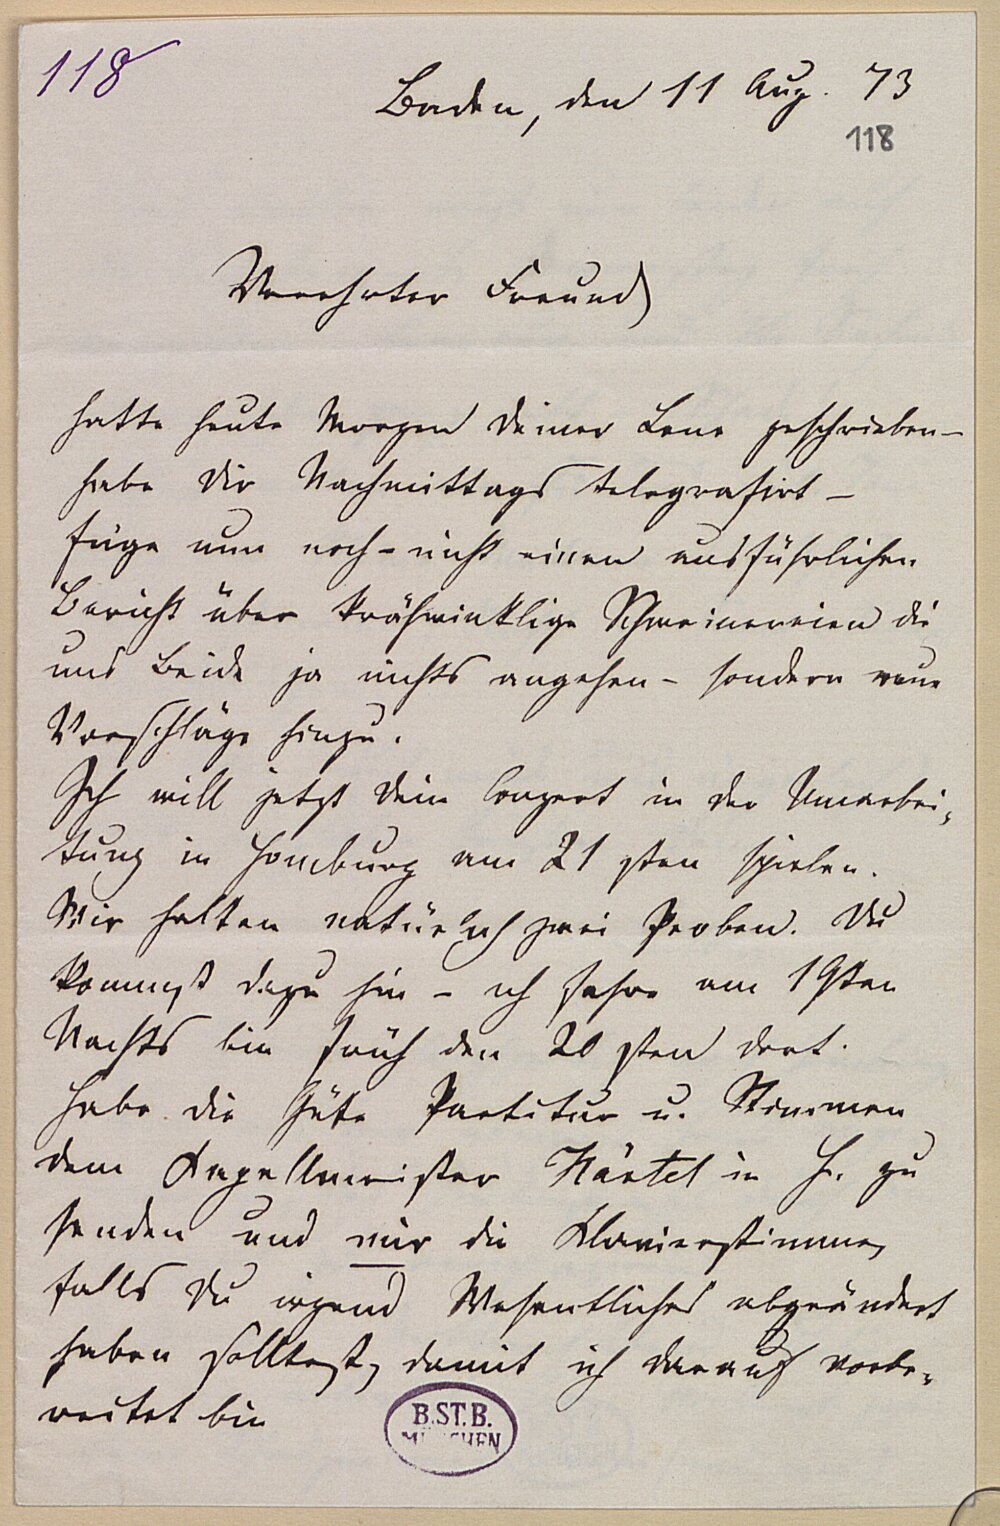 118
Baden, den 11 Aug. 73
118
Verehrter Freund
hatte heute Morgen Deiner Lene geschrieben –
habe Dir Nachmittags telegrafirt –
füge nun noch – nicht einen ausführlichen
Bericht über krähwinklige Schweinereien die
uns Beide ja nichts angehen – sondern neue
Vorschläge hinzu.
Ich will jetzt Dein Conzert in der Umarbei-
tung in Homburg am 21 sten spielen.
Wir halten natürlich zwei Proben. Du
kommst dazu hin – ich fahre am 19ten
Nachts bin früh den 20 sten dort.
Habe die Güte Partitur u. Stimmen
dem Kapellmeister Härtel in H. zu
senden und mir die Klavierstimme,
falls Du irgend Wesentliches abgeändert
haben solltest, damit ich darauf vorbe-
reitet bin
B.ST.B.
MÜNCHEN